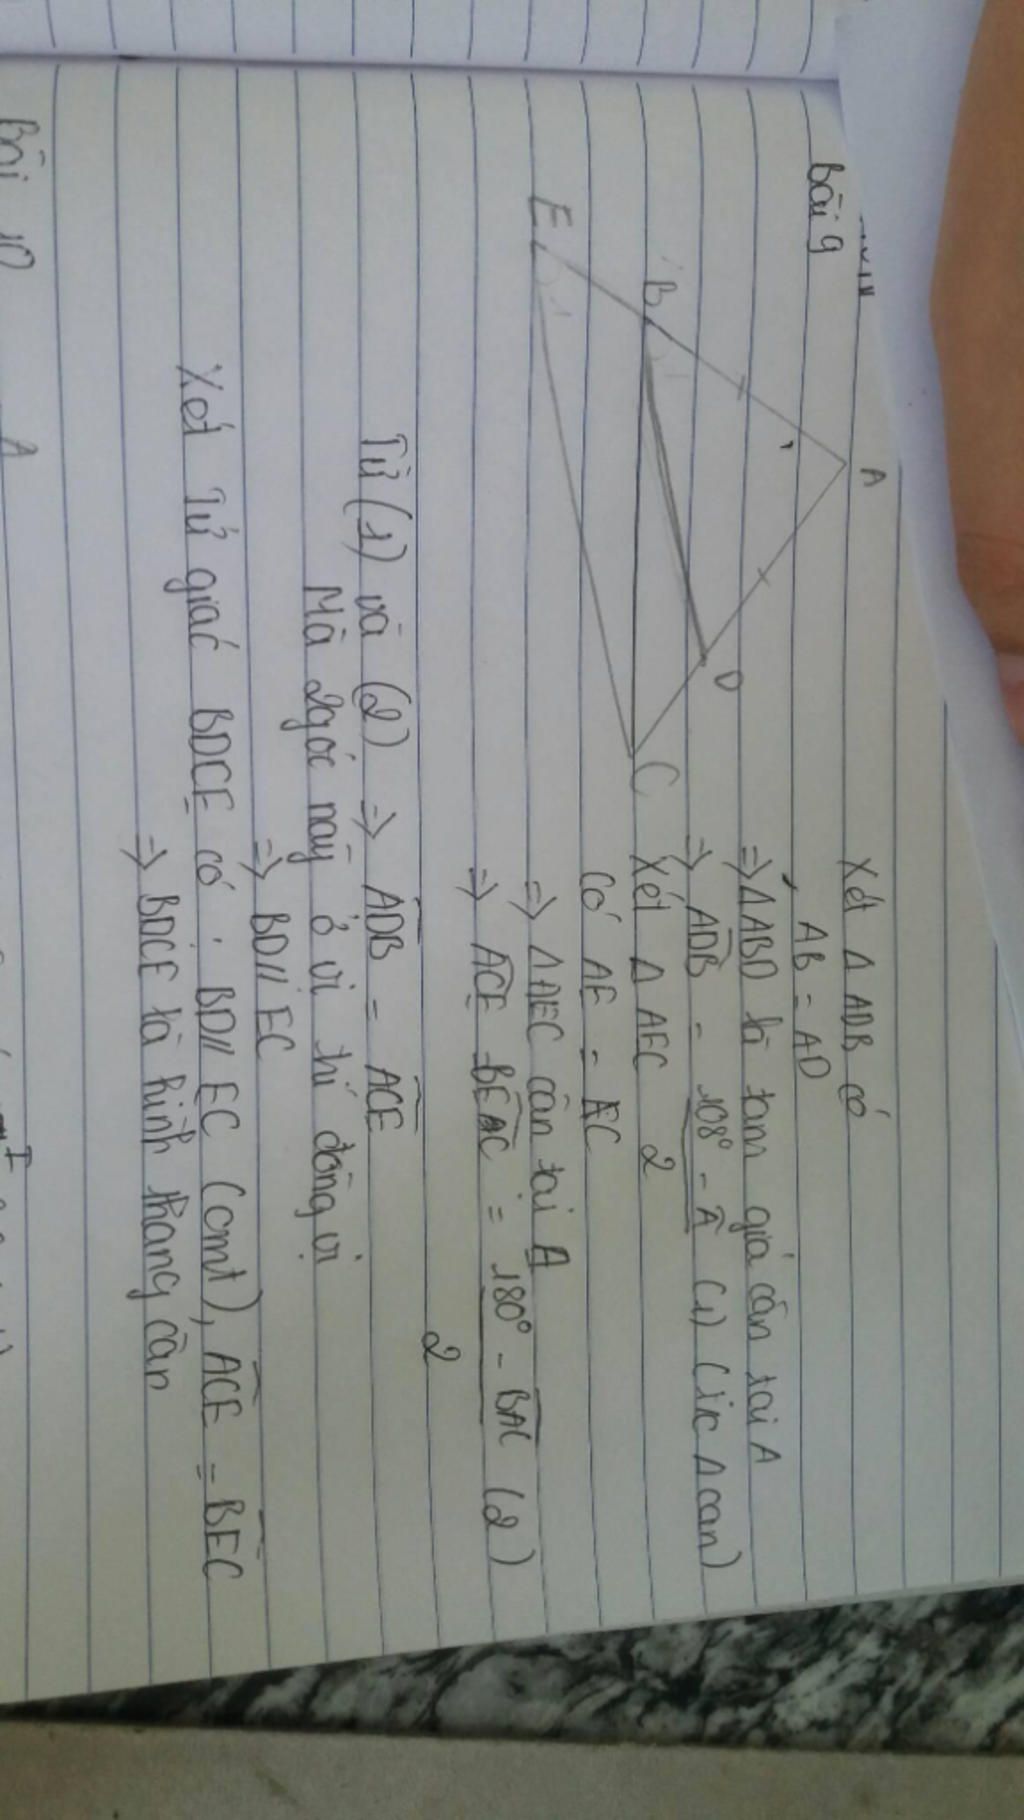 Bài 9
A
B
D
E
C
Xét Δ ADB có
AB = AD
=> ΔABD là tam giá cân tại A
=> ADB = 108° - A (1) (t/c Δ can)
2
Xét Δ AEC
Có AE = AC
=> Δ AEC cân tại A
=> ACE = BEAC = 180° - BAC (2)
2
Từ (1) và (2) => ADB = ACE
Mà 2góc nay ở vi trí đồng vị
=> BD// EC
Xét Tứ giác BDCE có : BD// EC (cmt), ACE = BEC
=> BDCE là hình thang cân
Bài 10
A